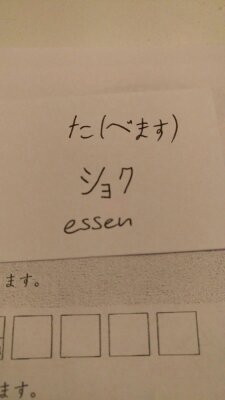 た(べます)
ショク
essen
ます。
ます。